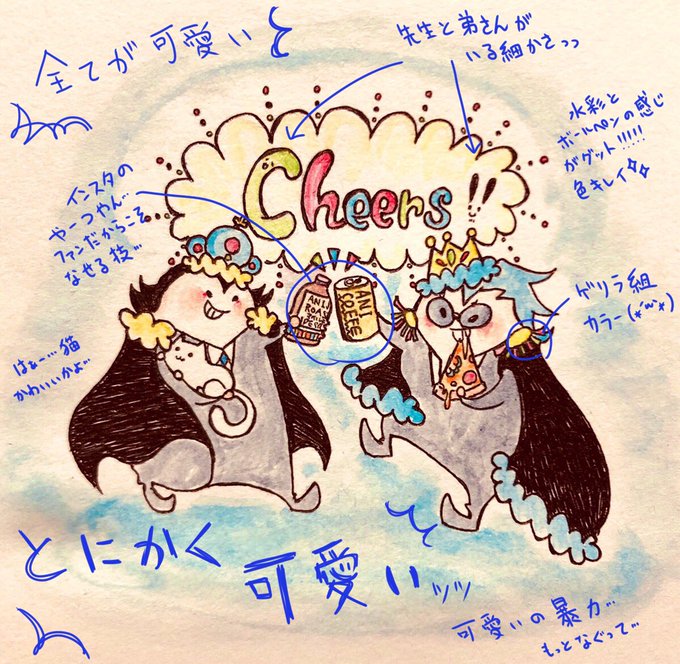 全てが可愛い
先生と弟さんが
いる細かさっっ
水彩と
ボールペンの感じ
がグット!!!!!
色キレイ
インスタの
やーつやん…
ファンだからこそ
なせる技…
Cheers!!
ANI
ROAS
ANI
COFFE
ゲリラ組
カラー(*´ω`*)
はぁー…猫
かわいいかよ…
とにかく
可愛いッッ
可愛いの暴力…
もっとなぐって…